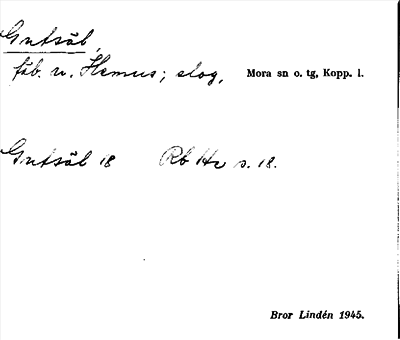 Gutsäl,
fäb. n. Hemus; slog, Mora sn o. tg, Kopp. l.
Gutsäl 18 Rb Hr s. 18.
Bror Lindén 1945.